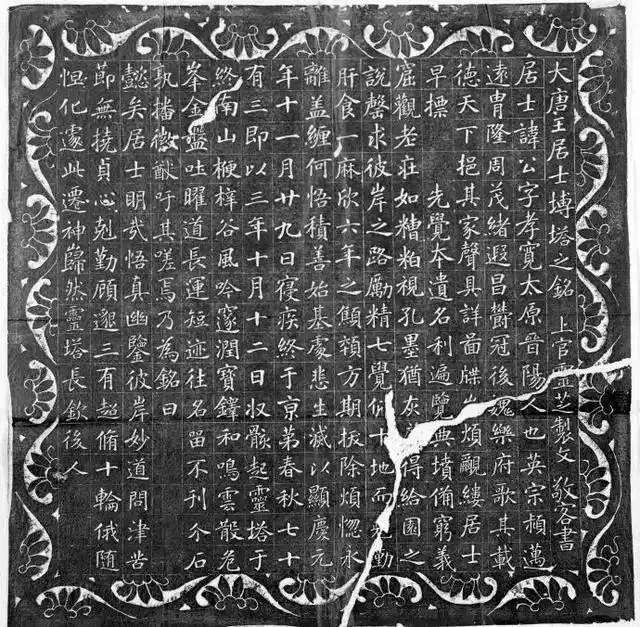 大唐王居士塼塔之銘 上官靈芝製文 敬客書
居士諱公字孝寬太原晉陽人也英宗穎邁
遠冑隆周茂緒遐昌鬱冠後魏樂府歌其載
德天下挹其家聲具詳啚牒豈煩覼縷居士
早標 先覺本遺名利遍覽典墳備窮義
窟觀老莊如糟粕視孔墨猶灰得給園之
說罄求彼岸之路勵精七覺俯十地而勤
肝食一麻欣六年之顦顇方期拔除煩惚永
離盖纏何悟積善始基處悲生滅以顯慶元
年十一月廿九日寢疾終于京第春秋七十
有三即以三年十月十二日收骸起靈塔于
終南山楩梓谷風吟邃澗寶鐸和鳴雲散危
峯金盤吐曜道長運短迹往名留不刊介石
孰播徽猷吁其嗟焉乃為銘曰
懿矣居士明哉悟真幽鑒彼岸妙道問津苦
節無撓貞心剋勤顧邈三有超脩十輪俄隨
怛化遽此遷神巋然靈塔長欽後人